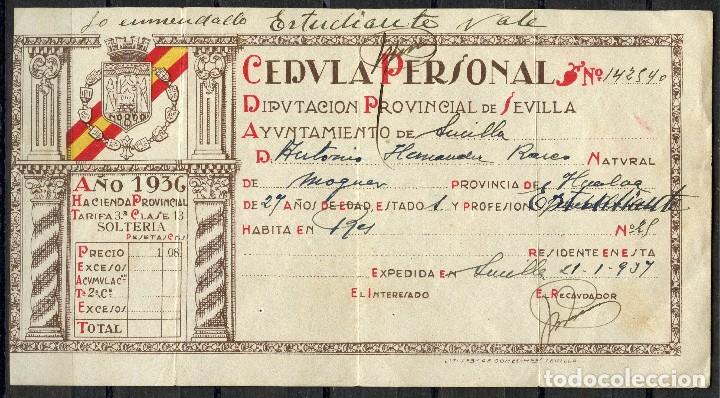 Lo enmendado Estudiante Vale
CEDULA PERSONAL Nº 142540
DIPUTACION PROVINCIAL DE SEVILLA
AYUNTAMIENTO DE Sevilla
D. Antonio Hernandez NATURAL
DE Moguer PROVINCIA DE Huelva
DE 27 AÑOS DE EDAD, ESTADO S Y PROFESION
HABITA EN Nº 25
RESIDENTE EN ESTA
EXPEDIDA EN Sevilla 21-1-937
EL INTERESADO EL RECAUDADOR
AÑO 1936
HACIENDA PROVINCIAL
TARIFA 3ª CLASE 13
SOLTERIA
PESETAS CTS
PRECIO 1 08
EXCESOS
ACUMULACN
Tª 2ª Cª
EXCESO
TOTAL
todocoleccion
todocoleccion.net